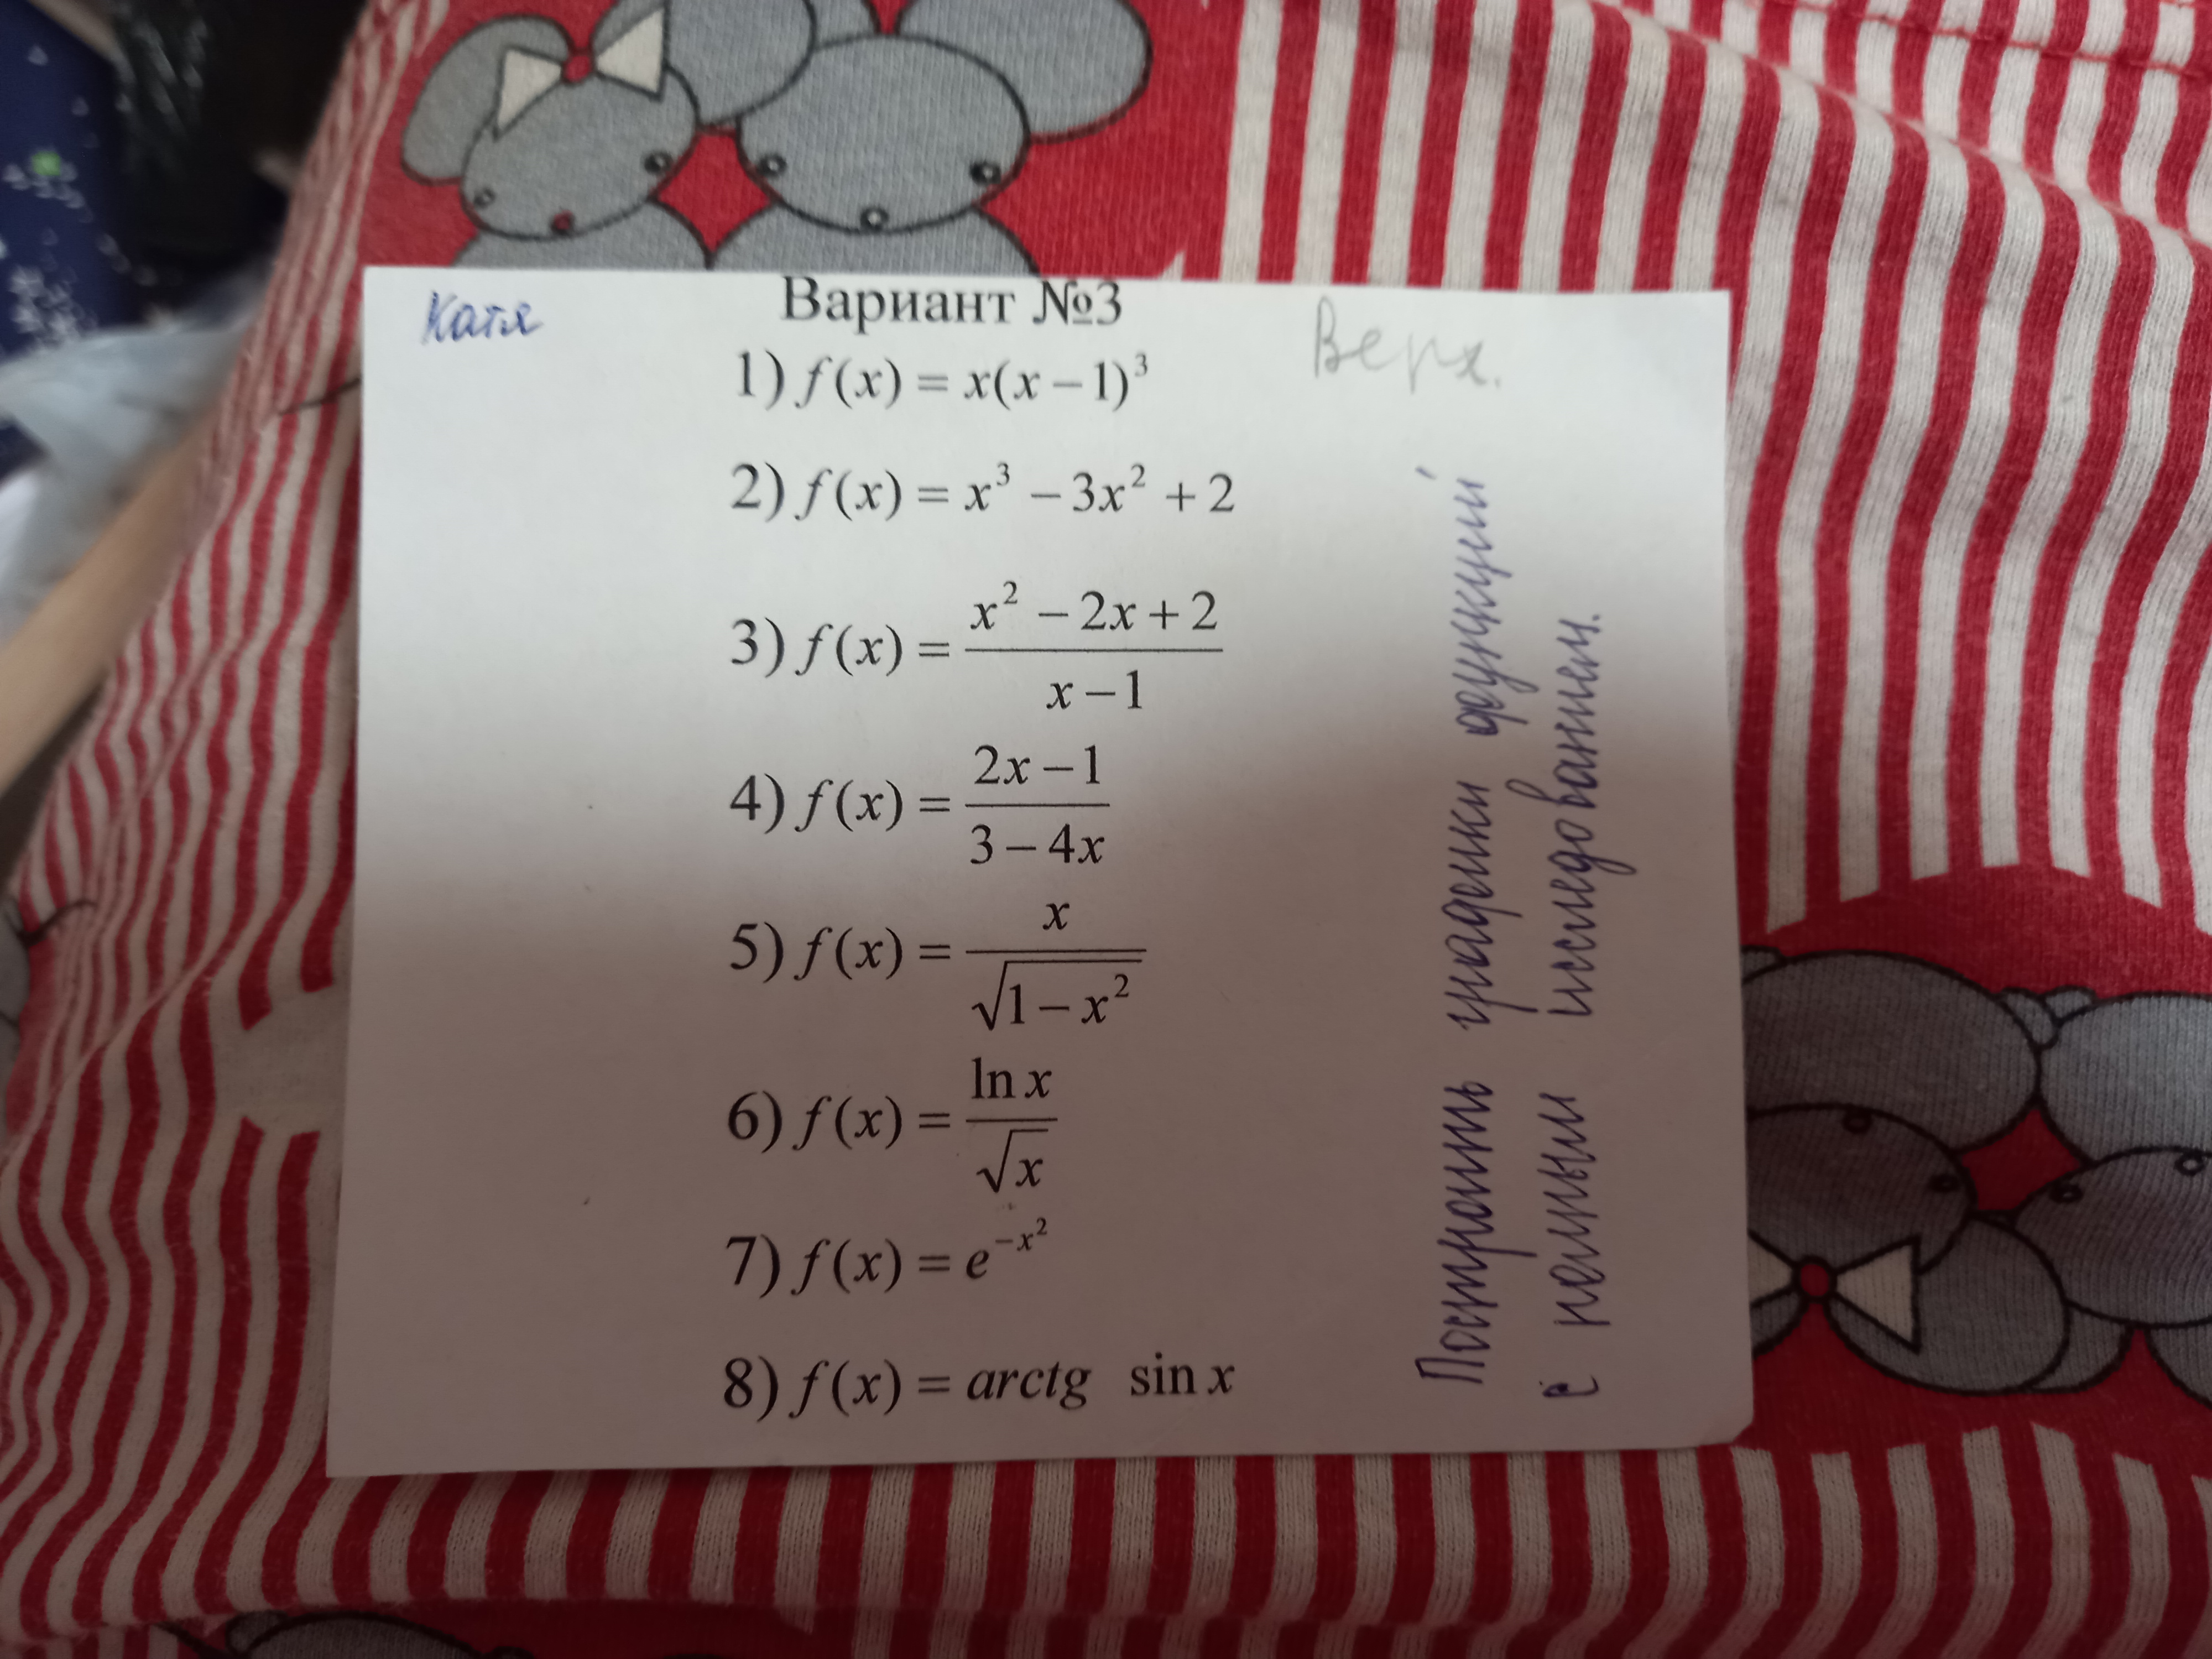 Катя
Вариант №3
Верх.
1) f(x) = x(x − 1)³
2) f(x) = x³ − 3x² + 2
3) f(x) = (x² − 2x + 2) / (x − 1)
4) f(x) = (2x − 1) / (3 − 4x)
5) f(x) = x / √(1 − x²)
6) f(x) = ln x / √x
7) f(x) = e^(−x²)
8) f(x) = arctg sin x
Построить графики функций
с полным исследованием.